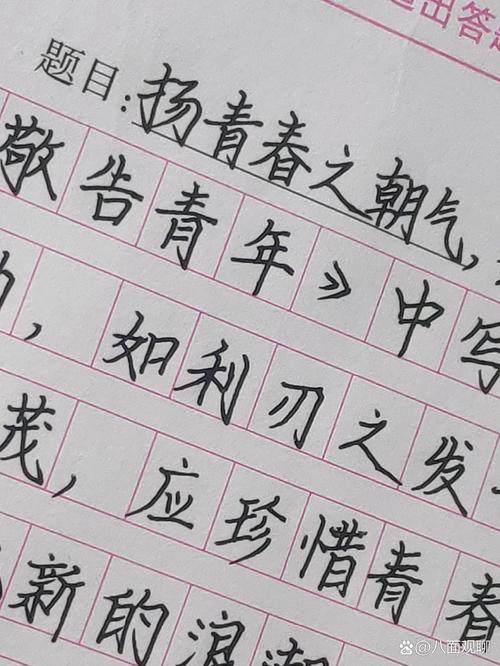 出答题
题目:扬青春之朝气,
敬告青年》中写
,如利刃之发
茂,应珍惜青春
新的浪潮
@八面观聊